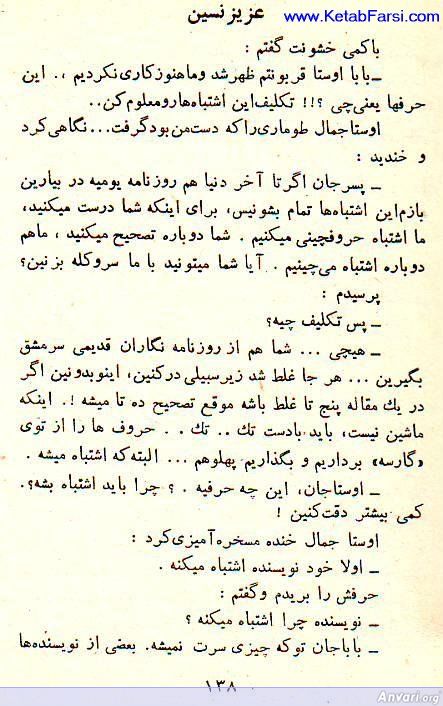 www.KetabFarsi.com
عزیز نسین
با کمی خشونت گفتم :
ــ بابا اوستا قربونتم ظهر شد و ما هنوز کاری نکردیم .. این
حرفها یعنی چی ؟!! تکلیف این اشتباه‌ها رو معلوم کن..
اوستا جمال طوماری را که دست من بود گرفت... نگاهی کرد
و خندید :
ــ پسر جان اگر تا آخر دنیا هم روزنامه یومیه در بیارین
بازم این اشتباه‌ها تمام بشو نیس، برای اینکه شما درست میکنید،
ما اشتباه حروفچینی میکنیم . شما دوباره تصحیح میکنید ، ما هم
دوباره اشتباه می‌چینیم . آیا شما میتونید با ما سروکله بزنین؟
پرسیدم :
ــ پس تکلیف چیه؟
ــ هیچی ... شما هم از روزنامه نگاران قدیمی سرمشق
بگیرین ... هر جا غلط شد زیر سبیلی در کنین، اینو بدونین اگر
در یك مقاله پنج تا غلط باشه موقع تصحیح ده تا میشه !. اینکه
ماشین نیست، باید بادست تك .. تك . . حروف ها را از توی
«گارسه» برداریم و بگذاریم پهلو هم ... البته که اشتباه میشه .
ــ اوستا جان، این چه حرفیه . ؟ چرا باید اشتباه بشه؟.
کمی بیشتر دقت کنین !
اوستا جمال خنده مسخره آمیزی کرد :
ــ اولا خود نویسنده اشتباه میکنه .
حرفش را بریدم و گفتم :
ــ نویسنده چرا اشتباه میکنه ؟
ــ بابا جان تو که چیزی سرت نمیشه. بعضی از نویسنده‌ها
۱۳۸
Anvari.org